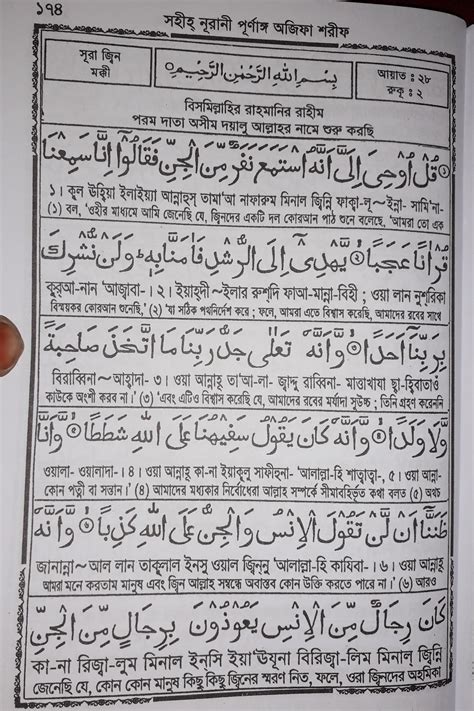 ১৭৪
সহীহ্ নূরানী পূর্ণাঙ্গ অজিফা শরীফ
সূরা জ্বিন
মক্কী
بِسْمِ اللّٰهِ الرَّحْمٰنِ الرَّحِيْمِ
আয়াত : ২৮
রুকু : ২
বিসমিল্লাহির রাহমানির রাহীম
পরম দাতা অসীম দয়ালু আল্লাহর নামে শুরু করছি
قُلْ اُوْحِىَ اِلَىَّ اَنَّهُ اسْتَمَعَ نَفَرٌ مِّنَ الْجِنِّ فَقَالُوْۤا اِنَّا سَمِعْنَا
১। কুল ঊহিয়া ইলাইয়্যা আন্নাহুস্ তামা'আ নাফারুম মিনাল জিন্নি ফাক্বা-লূ~ইন্না- সামি'না-
(১) বল, 'ওহীর মাধ্যমে আমি জেনেছি যে, জ্বিনদের একটি দল কোরআন পাঠ শুনে বলেছে, 'আমরা তো এক
قُرْاٰنًا عَجَبًا ۙ يَّهْدِىْۤ اِلَى الرُّشْدِ فَاٰمَنَّا بِهٖ ؕ وَلَنْ نُّشْرِكَ
কুরআ-নান 'আজ্বাবা-। ২। ইয়াহ্দী~ইলার রুশ্দি ফাআ-মান্না-বিহী ; ওয়া লান নুশ্‌রিকা
বিস্ময়কর কোরআন শুনেছি,' (২) 'যা সঠিক পথনির্দেশ করে ; ফলে, আমরা এতে বিশ্বাস করেছি, আমাদের রবের সাথে
بِرَبِّنَاۤ اَحَدًا ۙ وَّاَنَّهٗ تَعٰلٰى جَدُّ رَبِّنَا مَا اتَّخَذَ صَاحِبَةً
বিরাব্বিনা~আহাদা- ৩। ওয়া আন্নাহূ তা'আ-লা- জাদ্দু রাব্বিনা- মাত্তাখাযা ছা-হিবাতাওঁ
কাউকে অংশী করব না।' (৩) 'এবং এটিও বিশ্বাস করেছি যে, আমাদের রবের মর্যাদা সুউচ্চ ; তিনি গ্রহণ করেননি
وَّلَا وَلَدًا ۙ وَّاَنَّهٗ كَانَ يَقُوْلُ سَفِيْهُنَا عَلَى اللّٰهِ شَطَطًا ۙ وَّاَنَّا
ওয়ালা- ওয়ালাদা-। ৪। ওয়া আন্নাহূ কা-না ইয়াকূলু সাফীহুনা- 'আলাল্লা-হি শাত্বাত্বা-, ৫। ওয়া আন্না-
কোন পত্নী বা সন্তান।' (৪) আমাদের মধ্যকার নির্বোধেরা আল্লাহ সম্পর্কে সীমাবহির্ভূত কথা বলত (৫) অথচ
ظَنَنَّاۤ اَنْ لَّنْ تَقُوْلَ الْاِنْسُ وَالْجِنُّ عَلَى اللّٰهِ كَذِبًا ۙ وَّاَنَّهٗ
জানান্না~আল লান তাকূলাল ইনসু ওয়াল জিন্নু 'আলাল্লা-হি কাযিবা-। ৬। ওয়া আন্নাহূ
আমরা মনে করতাম মানুষ এবং জ্বিন আল্লাহ সম্বন্ধে অবাস্তব কোন উক্তি করতে পারে না।' (৬) আরও
كَانَ رِجَالٌ مِّنَ الْاِنْسِ يَعُوْذُوْنَ بِرِجَالٍ مِّنَ الْجِنِّ
কা-না রিজ্বা-লুম মিনাল ইনসি ইয়া'ঊযূনা বিরিজ্বা-লিম মিনাল্ জ্বিন্নি
জেনেছি যে, কোন কোন মানুষ কিছু কিছু জিনের স্মরণ নিত, ফলে, ওরা জ্বিনদের অহমিকা